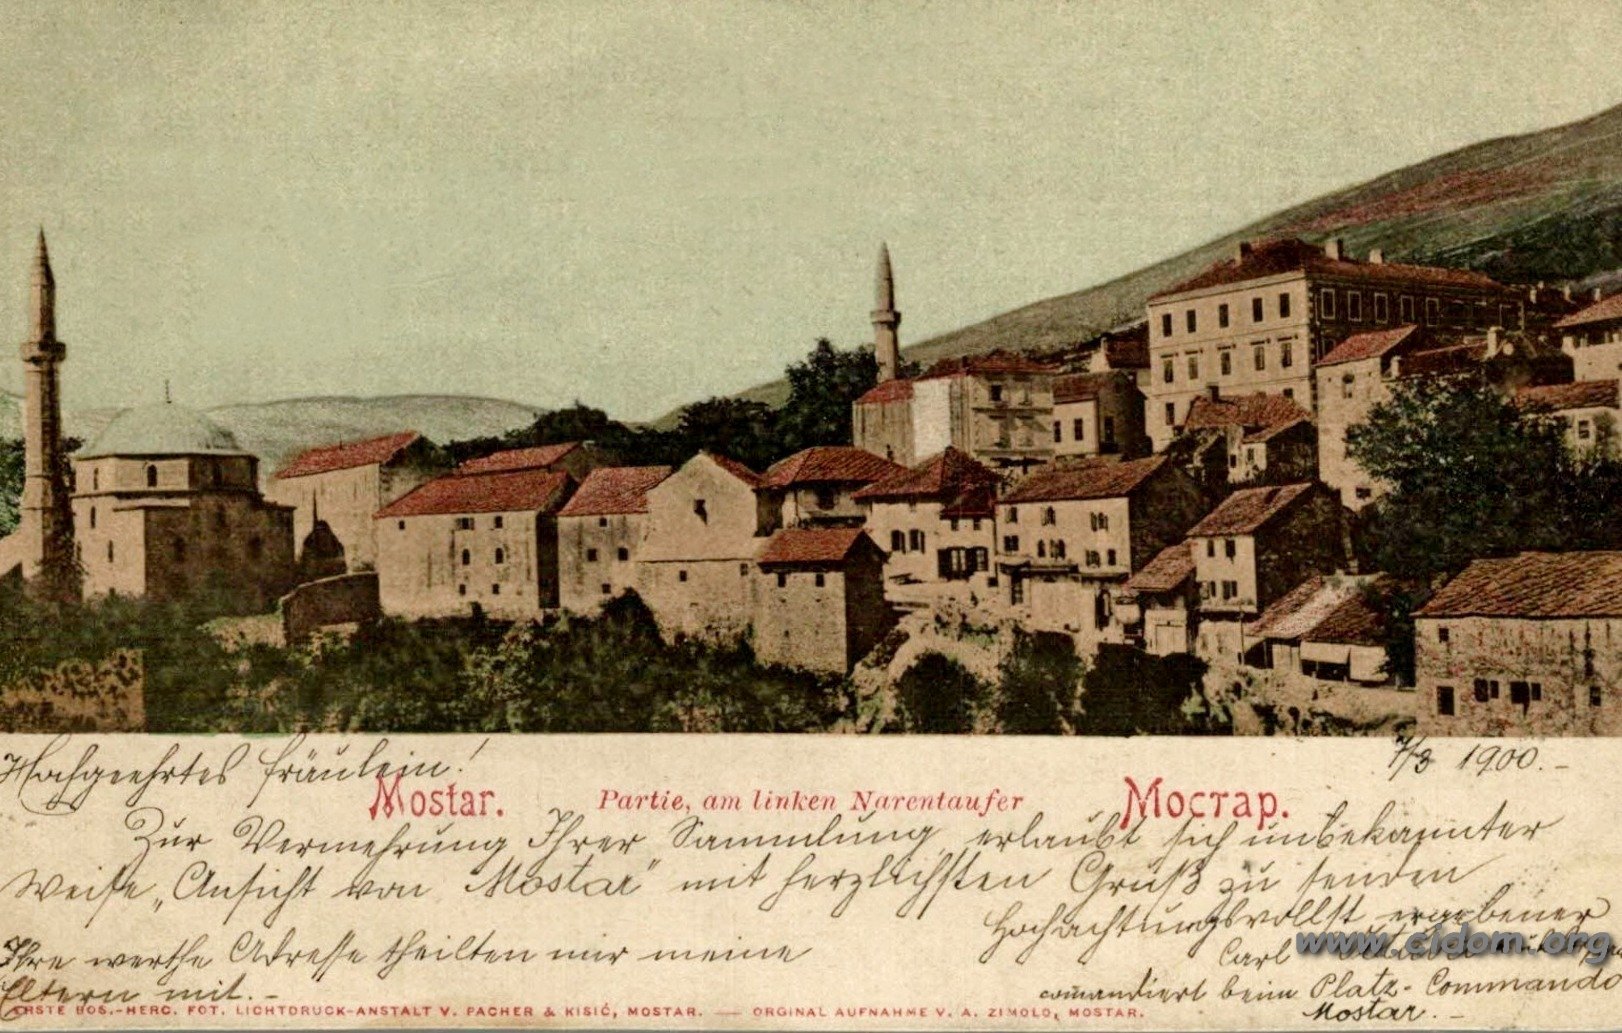 Hochgeehrtes Fräulein!
7/3 1900.-
Mostar. Partie, am linken Narentaufer Мостар.
Zur Vermehrung Ihrer Sammlung erlaubt sich unbekannter
Weise „Ansicht von Mostar" mit herzlichsten Gruß zu senden
Hochachtungsvollst ergebener
Carl
www.cidom.org
Ihre werthe Adresse theilten mir meine
Eltern mit.-
comandiert beim Platz-Commando
Mostar.-
ERSTE BOS.-HERC. FOT. LICHTDRUCK-ANSTALT V. PACHER & KISIĆ, MOSTAR. — ORGINAL AUFNAHME V. A. ZIMOLO, MOSTAR.